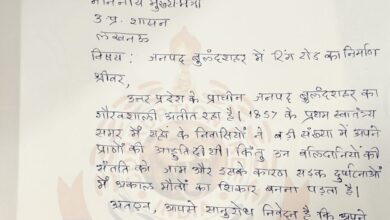 माननीय मुख्यमंत्री
उ.प्र. शासन
लखनऊ
विषय : जनपद बुलंदशहर में रिंग रोड का निर्माण
श्रीवर,
उत्तर प्रदेश के प्राचीन जनपद बुलंदशहर का
गौरवशाली अतीत रहा है। 1857 के प्रथम स्वातंत्र्य
समर में यहाँ के निवासियों ने बड़ी संख्या में अपने
प्राणों की आहुति दी थी। किंतु उन बलिदानियों की
संतति को जाम और उसके कारण सड़क दुर्घटनाओं
में अकाल मौतों का शिकार बनना पड़ता है।
अतएव, आपसे सानुरोध निवेदन है कि अपने